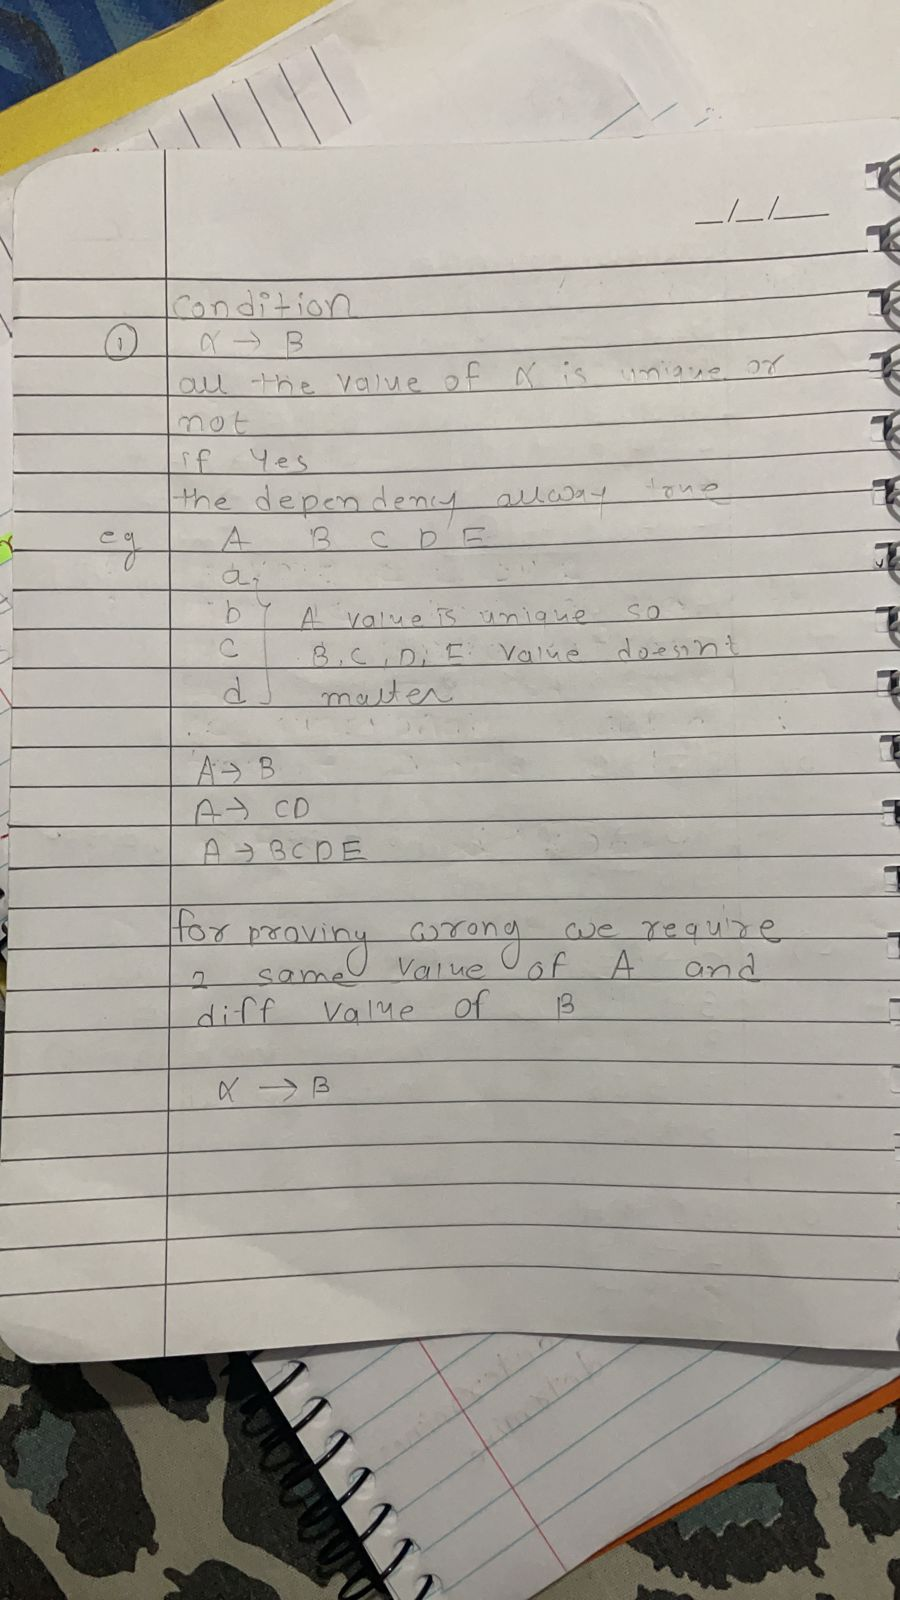 _/_/__
condition
① α → B
all the value of α is unique or
not
if Yes
the dependency allway true
eg A B C D E
a
b A value is unique so
c B, C, D, E value doesnt
d matter
A → B
A → CD
A → BCDE
for proving wrong we require
2 same value of A and
diff value of B
α → B